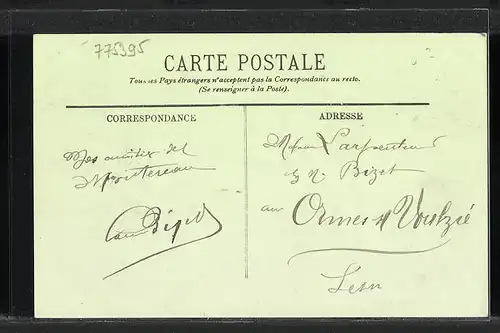 775395
CARTE POSTALE
Tous les Pays étrangers n'acceptent pas la Correspondance au recto.
(Se renseigner à la Poste).
CORRESPONDANCE
ADRESSE
Mes amitiés de
Montereau
Bizet
Madame Carpentier
Bizet
au
Ormes s/ Voulzie